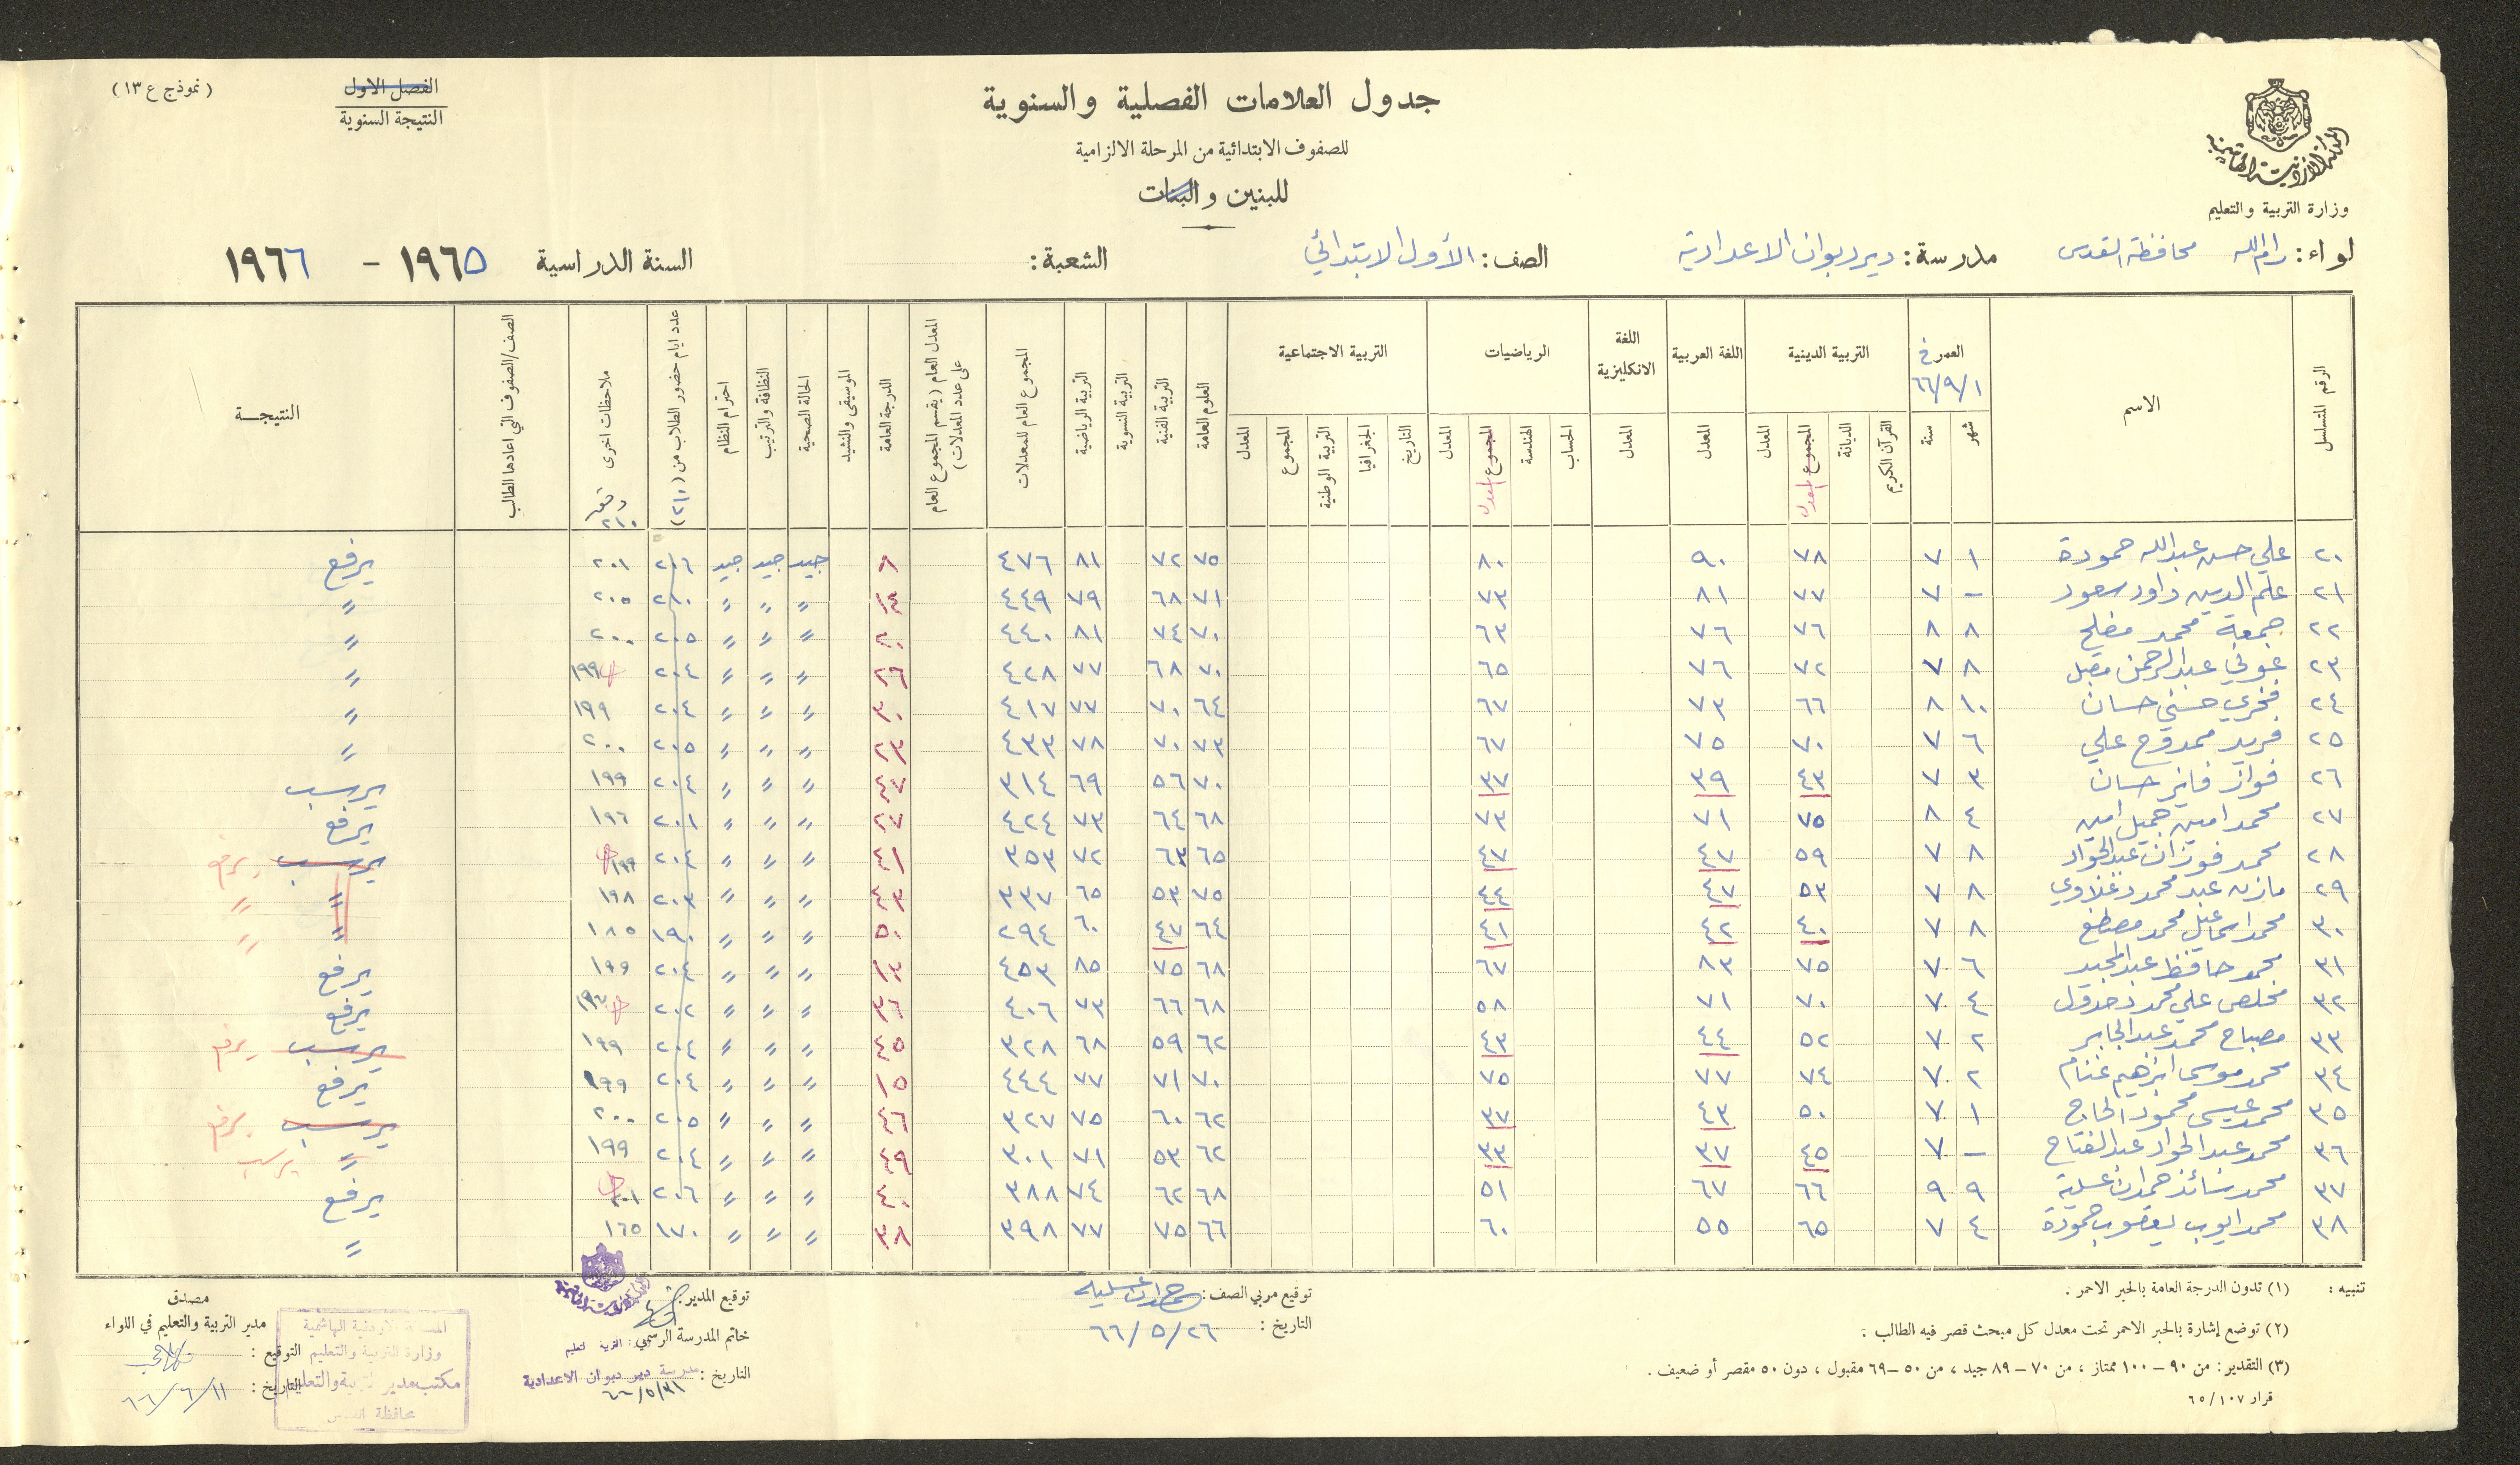 المملكة الاردنية الهاشمية
وزارة التربية والتعليم
جدول العلامات الفصلية والسنوية
للصفوف الابتدائية من المرحلة الالزامية
للبنين والبنات
الفصل الاول
النتيجة السنوية
(نموذج ع ١٣)
لواء: رام الله محافظة القدس مدرسة: دير دبوان الاعدادية الصف: الأول الابتدائي الشعبة: السنة الدراسية ١٩٦٥ - ١٩٦٦
الرقم المتسلسل الاسم العمر في ٦٦/٩/١ التربية الدينية اللغة العربية اللغة الانكليزية الرياضيات التربية الاجتماعية العلوم العامة التربية الفنية التربية النسوية التربية الرياضية المجموع العام للمعدلات المعدل العام (بقسم المجموع العام على عدد المعدلات) الدرجة العامة الموسيقى والنشيد الحالة الصحية النظافة والترتيب احترام النظام عدد ايام حضور الطلاب من (٢١٠) ملاحظات اخرى ٢١٠ الصف/الصفوف التي اعادها الطالب النتيجة
شهر سنة القرآن الكريم الديانة المجموع المعدل المعدل المعدل المعدل الحساب الهندسة المجموع المعدل المعدل التاريخ الجغرافيا التربية الوطنية المجموع المعدل
٢٠ علي حسن عبدالله حمودة ١ ٧ ٧٨ ٩٠ ٨٠ ٧٥ ٧٢ ٨١ ٤٧٦ ٨ جيد جيد جيد ٢٠٦ ٢٠١ يرفع
٢١ علم الدين داود سعود - ٧ ٧٧ ٨١ ٧٣ ٧١ ٦٨ ٧٩ ٤٤٩ " " " ٢١٠ ٢٠٥ "
٢٢ جمعة محمد مفلح ٨ ٨ ٧٦ ٧٦ ٦٣ ٧٠ ٧٤ ٨١ ٤٤٠ " " " ٢٠٥ ٢٠٠ "
٢٣ عوني عبدالرحمن مقبل ٨ ٧ ٧٢ ٧٦ ٦٥ ٧٠ ٦٨ ٧٧ ٤٢٨ ٢٦ " " " ٢٠٤ ١٩٩ "
٢٤ فخري حسني حسان ١٠ ٨ ٦٦ ٧٣ ٦٧ ٦٤ ٧٠ ٧٧ ٤١٧ ٣٠ " " " ٢٠٤ ١٩٩ "
٢٥ فريد ممدوح علي ٦ ٧ ٧٠ ٧٥ ٦٧ ٧٣ ٧٠ ٧٨ ٤٣٣ ٢٣ " " " ٢٠٥ ٢٠٠ "
٢٦ فواز فايز حسان ٣ ٧ ٤٣ ٣٩ ٣٧ ٧٠ ٥٦ ٦٩ ٣١٤ ٤٧ " " " ٢٠٤ ١٩٩ يرسب
٢٧ محمد امين جميل امين ٤ ٨ ٧٥ ٧١ ٧٣ ٦٨ ٦٤ ٧٣ ٤٢٤ " " " ٢٠١ ١٩٦ يرفع
٢٨ محمد فوزان عبدالجواد ٨ ٧ ٥٩ ٤٧ ٤٧ ٦٥ ٦٣ ٧٢ ٣٥٣ ٤١ " " " ٢٠٤ ١٩٩ يرسب يرفع
٢٩ مازن عبد محمود دغلاوي ٨ ٧ ٥٣ ٤٧ ٤٤ ٧٥ ٥٣ ٦٥ ٣٣٧ ٤٣ " " " ٢٠٣ ١٩٨ " "
٣٠ محمد اسماعيل محمد مصطفى ٨ ٧ ٤٠ ٤٢ ٤١ ٦٤ ٤٧ ٦٠ ٢٩٤ ٥٠ " " " ١٩٠ ١٨٥ " "
٣١ محمد حافظ عبدالمجيد ٦ ٧ ٧٥ ٨٣ ٦٧ ٦٨ ٧٥ ٨٥ ٤٥٣ ١٢ " " " ٢٠٤ ١٩٩ يرفع
٣٢ مخلص علي محمد دحدول ٤ ٧ ٧٠ ٧١ ٥٨ ٦٨ ٦٦ ٧٣ ٤٠٦ " " " ٢٠٢ ١٩٧ يرفع
٣٣ مصباح محمد عبدالجابر ٢ ٧ ٥٢ ٤٤ ٤٣ ٦٢ ٥٩ ٦٨ ٣٢٨ ٤٥ " " " ٢٠٤ ١٩٩ يرسب يرفع
٣٤ محمد موسى ابراهيم غنام ٢ ٧ ٧٤ ٧٧ ٧٥ ٧٠ ٧١ ٧٧ ٤٤٤ ١٥ " " " ٢٠٤ ١٩٩ يرفع
٣٥ محمد عيسى محمود الحاج ١ ٧ ٥٠ ٤٣ ٣٧ ٦٢ ٦٠ ٧٥ ٣٢٧ ٤٦ " " " ٢٠٥ ٢٠٠ يرسب يرفع
٣٦ محمد عبدالجواد عبدالفتاح - ٧ ٤٥ ٣٧ ٣٣ ٦٢ ٥٣ ٧١ ٣٠١ ٤٩ " " " ٢٠٤ ١٩٩ " يرسب
٣٧ محمد سائد حمدان عسلية ٩ ٩ ٦٦ ٦٧ ٥١ ٦٨ ٦٢ ٧٤ ٣٨٨ ٤٠ " " " ٢٠٦ ٢٠١ يرفع
٣٨ محمد ايوب يعقوب حمودة ٤ ٧ ٦٥ ٥٥ ٦٠ ٦٦ ٧٥ ٧٧ ٣٩٨ ٣٨ " " " ١٧٠ ١٦٥ "
تنبيه: (١) تدون الدرجة العامة بالحبر الاحمر.
(٢) توضع إشارة بالحبر الاحمر تحت معدل كل مبحث قصر فيه الطالب.
(٣) التقدير: من ٩٠ - ١٠٠ ممتاز، من ٧٠ - ٨٩ جيد، من ٥٠ - ٦٩ مقبول، دون ٥٠ مقصر أو ضعيف.
قرار ٦٥/١٠٧
توقيع مربي الصف: حمدان عسلية
التاريخ: ٦٦/٥/٢٦
توقيع المدير:
خاتم المدرسة الرسمي:
التاريخ: ٦٦/٥/٣١
مدرسة دير دبوان الاعدادية
مصدق
مدير التربية والتعليم في اللواء
التوقيع:
التاريخ: ٦٦/٦/١١
المملكة الاردنية الهاشمية
وزارة التربية والتعليم
مكتب مدير التربية والتعليم
محافظة القدس